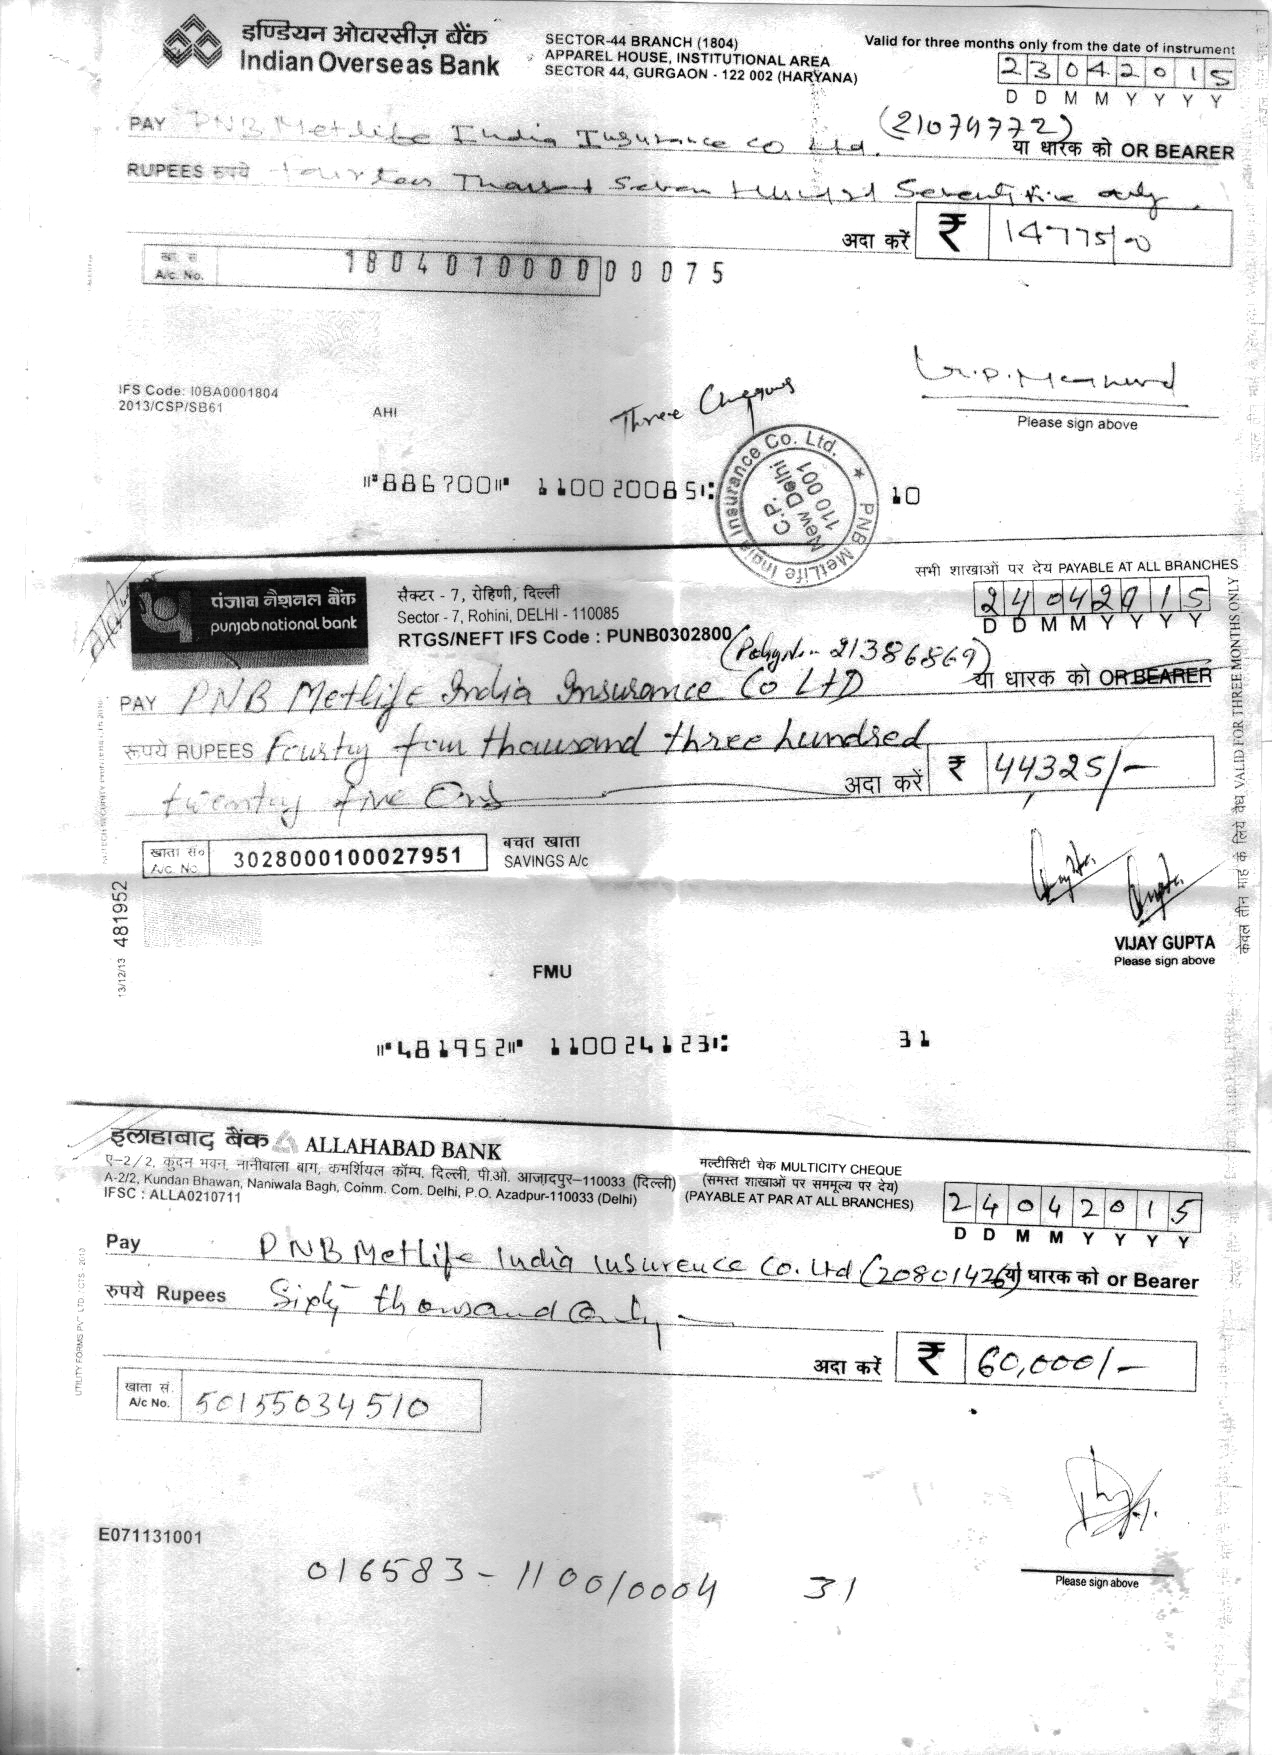 इण्डियन ओवरसीज़ बैंक
Indian Overseas Bank
SECTOR-44 BRANCH (1804)
APPAREL HOUSE, INSTITUTIONAL AREA
SECTOR 44, GURGAON - 122 002 (HARYANA)
Valid for three months only from the date of instrument
23042015
D D M M Y Y Y Y
(21079772)
PAY PNB Metlife India Insurance Co Ltd. या धारक को OR BEARER
RUPEES रुपये Fourteen Thousand Seven Hundred Seventy Five only.
अदा करें ₹ 14775/-
खा. सं.
A/c. No. 180401000000075
IFS Code: IOBA0001804
2013/CSP/SB61
AHI
Three Cheques
Please sign above
PNB MetLife India Insurance Co. Ltd. ★
C.P.
New Delhi
110 001
⑈886700⑈ 110020085⑆ 10
पंजाब नैशनल बैंक
punjab national bank
सैक्टर - 7, रोहिणी, दिल्ली
Sector - 7, Rohini, DELHI - 110085
RTGS/NEFT IFS Code : PUNB0302800
सभी शाखाओं पर देय PAYABLE AT ALL BRANCHES
24042015
D D M M Y Y Y Y
(Policy No - 21386869)
PAY PNB Metlife India Insurance Co LTD या धारक को OR BEARER
रूपये RUPEES Fourty four thousand three hundred
twenty five Only
अदा करें ₹ 44325/-
खाता सं०
A/c. No. 3028000100027951
बचत खाता
SAVINGS A/c
VIJAY GUPTA
Please sign above
13/12/13 481952
FMU
केवल तीन माह के लिये वैध VALID FOR THREE MONTHS ONLY
⑈481952⑈ 110024123⑆ 31
इलाहाबाद बैंक ALLAHABAD BANK
ए-2/2, कुंदन भवन, नानीवाला बाग, कमर्शियल कॉम्प. दिल्ली, पी.ओ. आजादपुर-110033 (दिल्ली)
A-2/2, Kundan Bhawan, Naniwala Bagh, Comm. Com. Delhi, P.O. Azadpur-110033 (Delhi)
IFSC : ALLA0210711
मल्टीसिटी चेक MULTICITY CHEQUE
(समस्त शाखाओं पर सममूल्य पर देय)
(PAYABLE AT PAR AT ALL BRANCHES)
24042015
D D M M Y Y Y Y
Pay PNB Metlife India Insurence Co. Ltd (20801426) या धारक को or Bearer
रुपये Rupees Sixty thousand Only
अदा करें ₹ 60,000/-
खाता सं.
A/c No. 50155034510
UTILITY FORMS PVT LTD., CTS. 2010
E071131001
Please sign above
016583 - 110010004 31